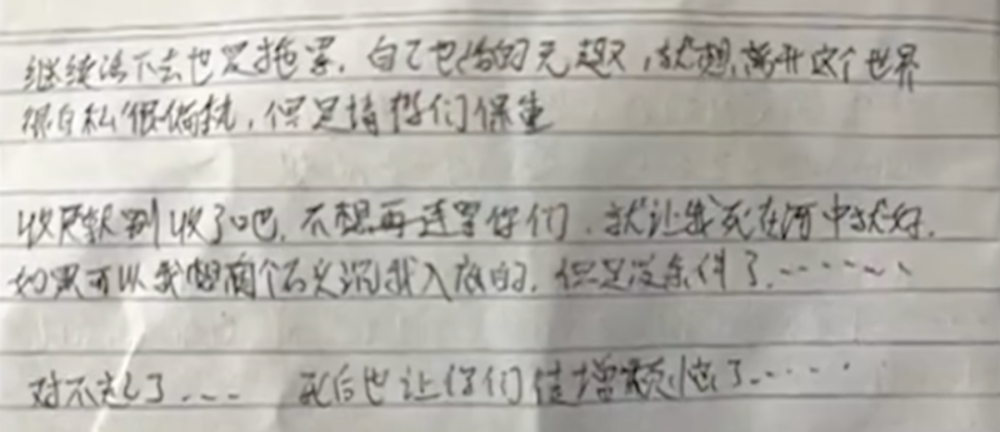 继续活下去也是拖累，自己也活的无趣，就想离开这个世界
很自私很偏执，但是请你们保重
收尸就别收了吧，不想再连累你们，就让我死在河中就好.
如果可以我想 个石头沉我入底的，但是没条件了.……
对不起了... 死后也让你们徒增烦恼了……